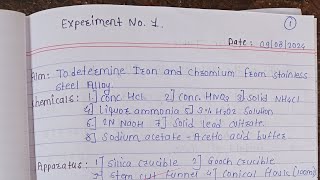 1
Experiment No. 1.
Date: 09/08/2024
Aim: To determine Iron and chromium from stainless
steel Alloy.
Chemicals: 1] conc. HCl 2] conc. HNO3 3] Solid NH4Cl
4] Liquor ammonia 5] 3% H2O2 Solution
6] 2N NaOH 7] Solid Lead nitrate
8] Sodium acetate - Acetic acid buffer.
Apparatus: 1] Silica crucible 2] Gooch crucible
funnel 4] Conical flask (100ml)